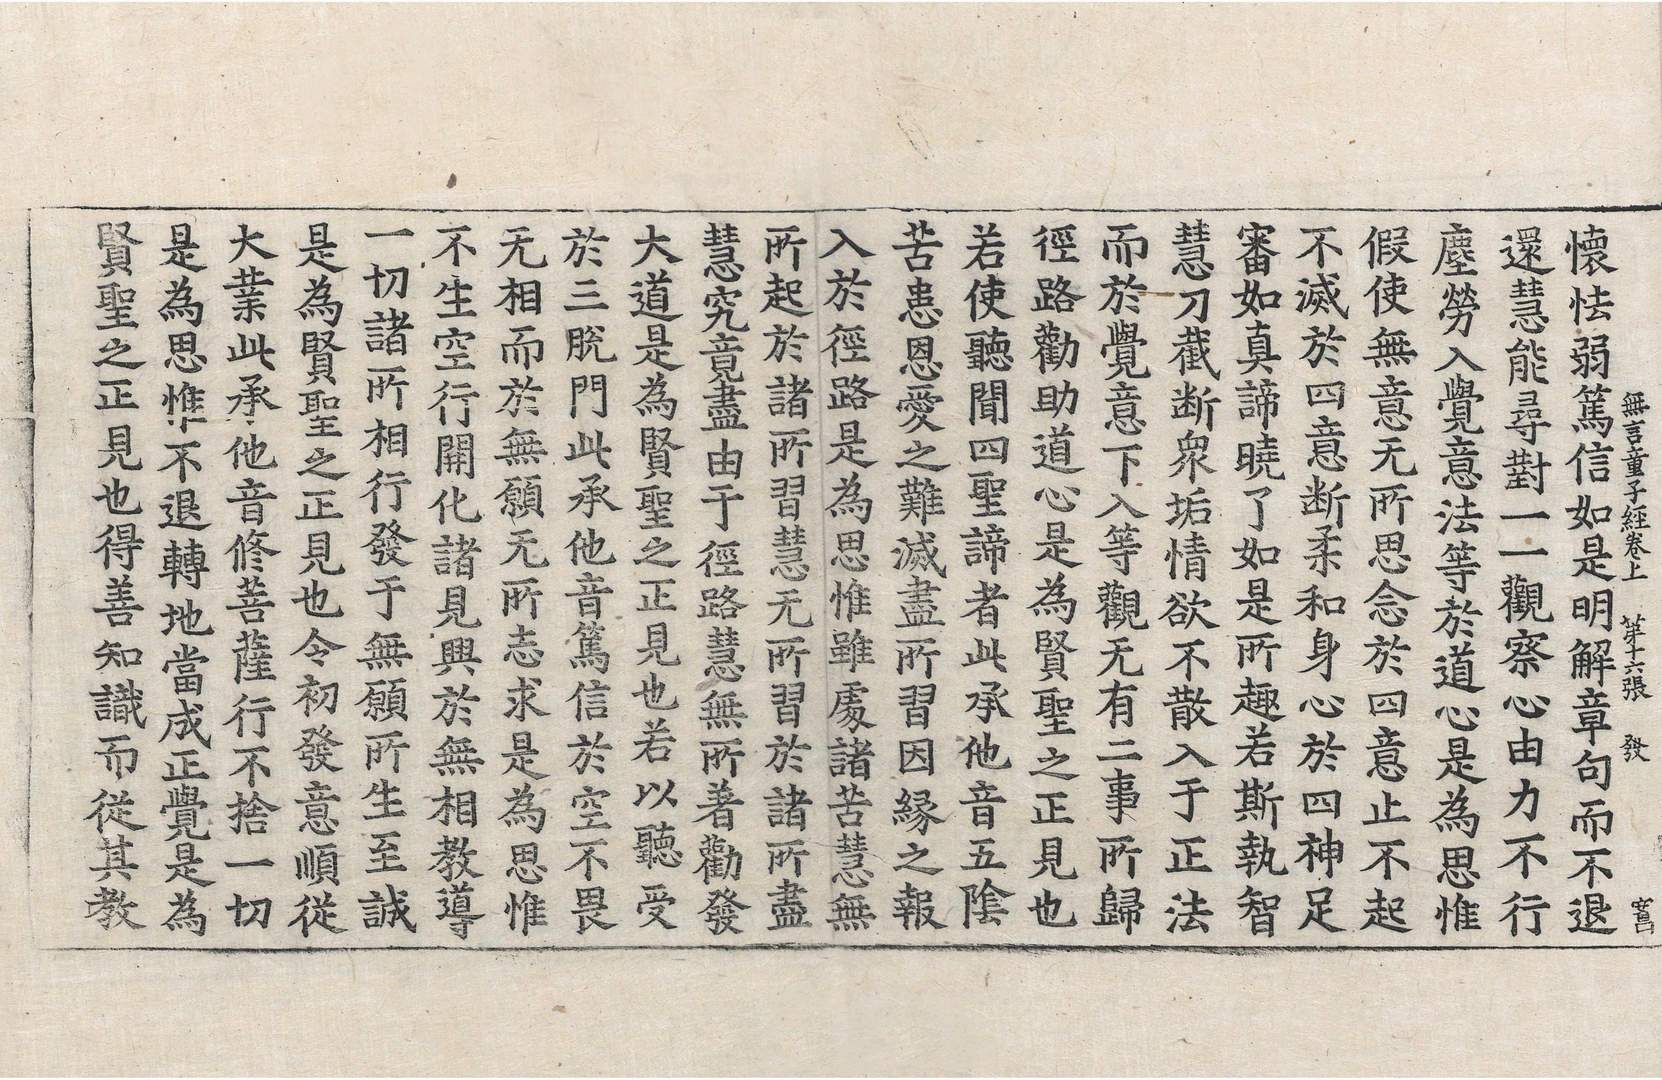 無言童子經卷上　第十六張　發
懷怯弱篤信如是明解章句而不退
還慧能尋對一一觀察心由力不行
塵勞入覺意法等於道心是為思惟
假使無意无所思念於四意止不起
不滅於四意断柔和身心於四神足
審如真諦曉了如是所趣若斯執智
慧刀截断衆垢情欲不散入于正法
而於覺意下入等觀无有二事所歸
徑路勸助道心是為賢聖之正見也
若使聽聞四聖諦者此承他音五陰
苦患恩愛之難滅盡所習因縁之報
入於徑路是為思惟雖處諸苦慧無
所起於諸所習慧无所習於諸所盡
慧究竟盡由于徑路慧無所著勸發
大道是為賢聖之正見也若以聽受
於三脫門此承他音篤信於空不畏
无相而於無願无所志求是為思惟
不生空行開化諸見興於無相教導
一切諸所相行發于無願所生至誠
是為賢聖之正見也令初發意順從
大業此承他音修菩薩行不捨一切
是為思惟不退轉地當成正覺是為
賢聖之正見也得善知識而從其教